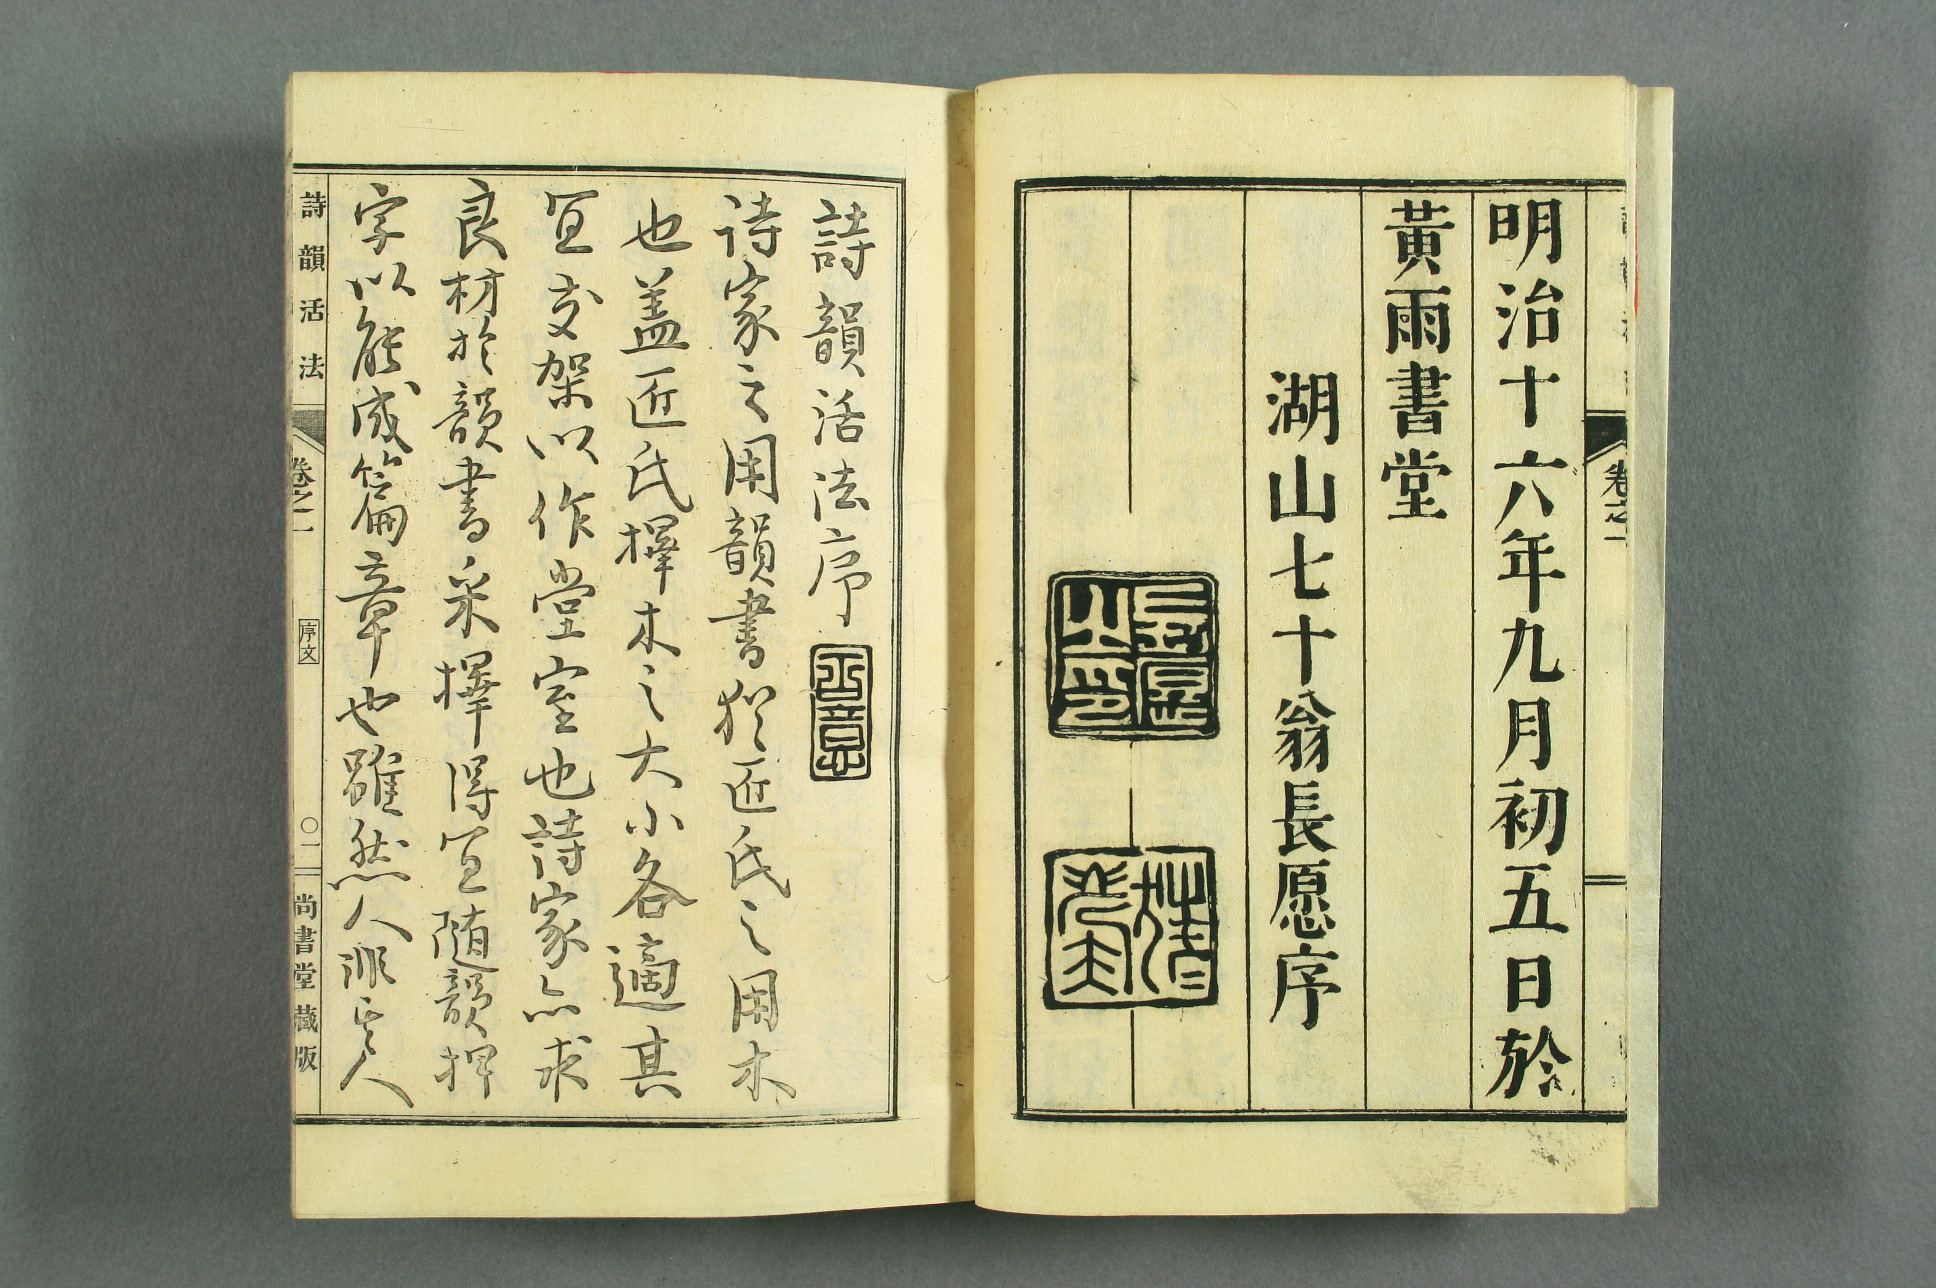 明治十六年九月初五日於
黃雨書堂
湖山七十翁長愿序
卷之一
詩韻活法序
詩家之用韻書猶匠氏之用木
也盖匠氏擇木之大小各適其
宜交架以作堂室也詩家亦求
良材於韻書采擇得宜隨韻押
字以能成篇章也雖然人非聖人
詩韻活法
卷之一
序文
〇二
尚書堂藏版